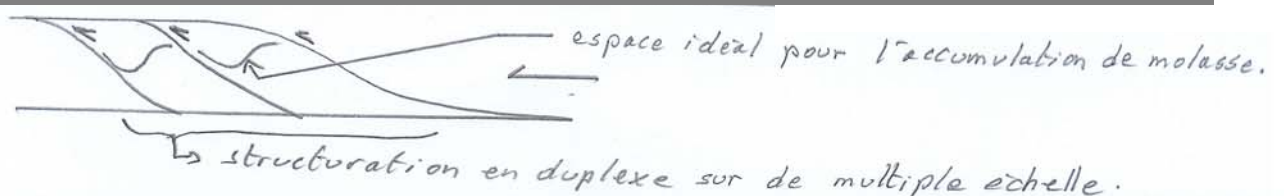 espace idéal pour l'accumulation de molasse.
structuration en duplexe sur de multiple échelle.